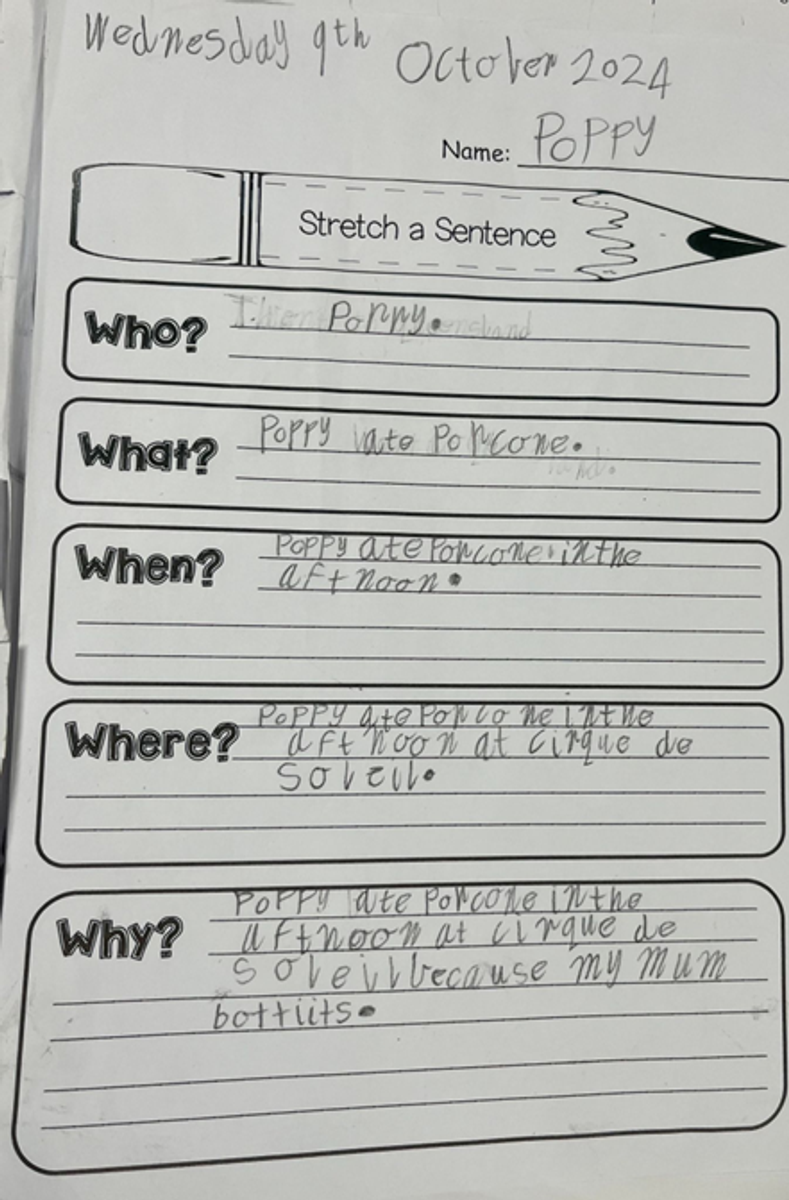 Wednesday 9th October 2024
Name: Poppy
Stretch a Sentence
Who? Poppy.
What? Poppy ate Porcone.
When? Poppy ate Porcone in the
aftnoon.
Where? Poppy ate Porcone in the
aftnoon at cirque de
Soleil.
Why? Poppy ate Porcone in the
aftnoon at cirque de
Soleil because my mum
bottiits.